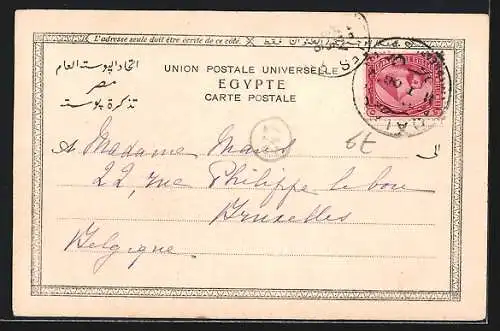 L'adresse seule doit être écrite de ce côté.
اتحاد البوستة العام
مصر
تذكرة بوستة
UNION POSTALE UNIVERSELLE
EGYPTE
CARTE POSTALE
Madame
22, rue Philippe le bon
Bruxelles
Belgique